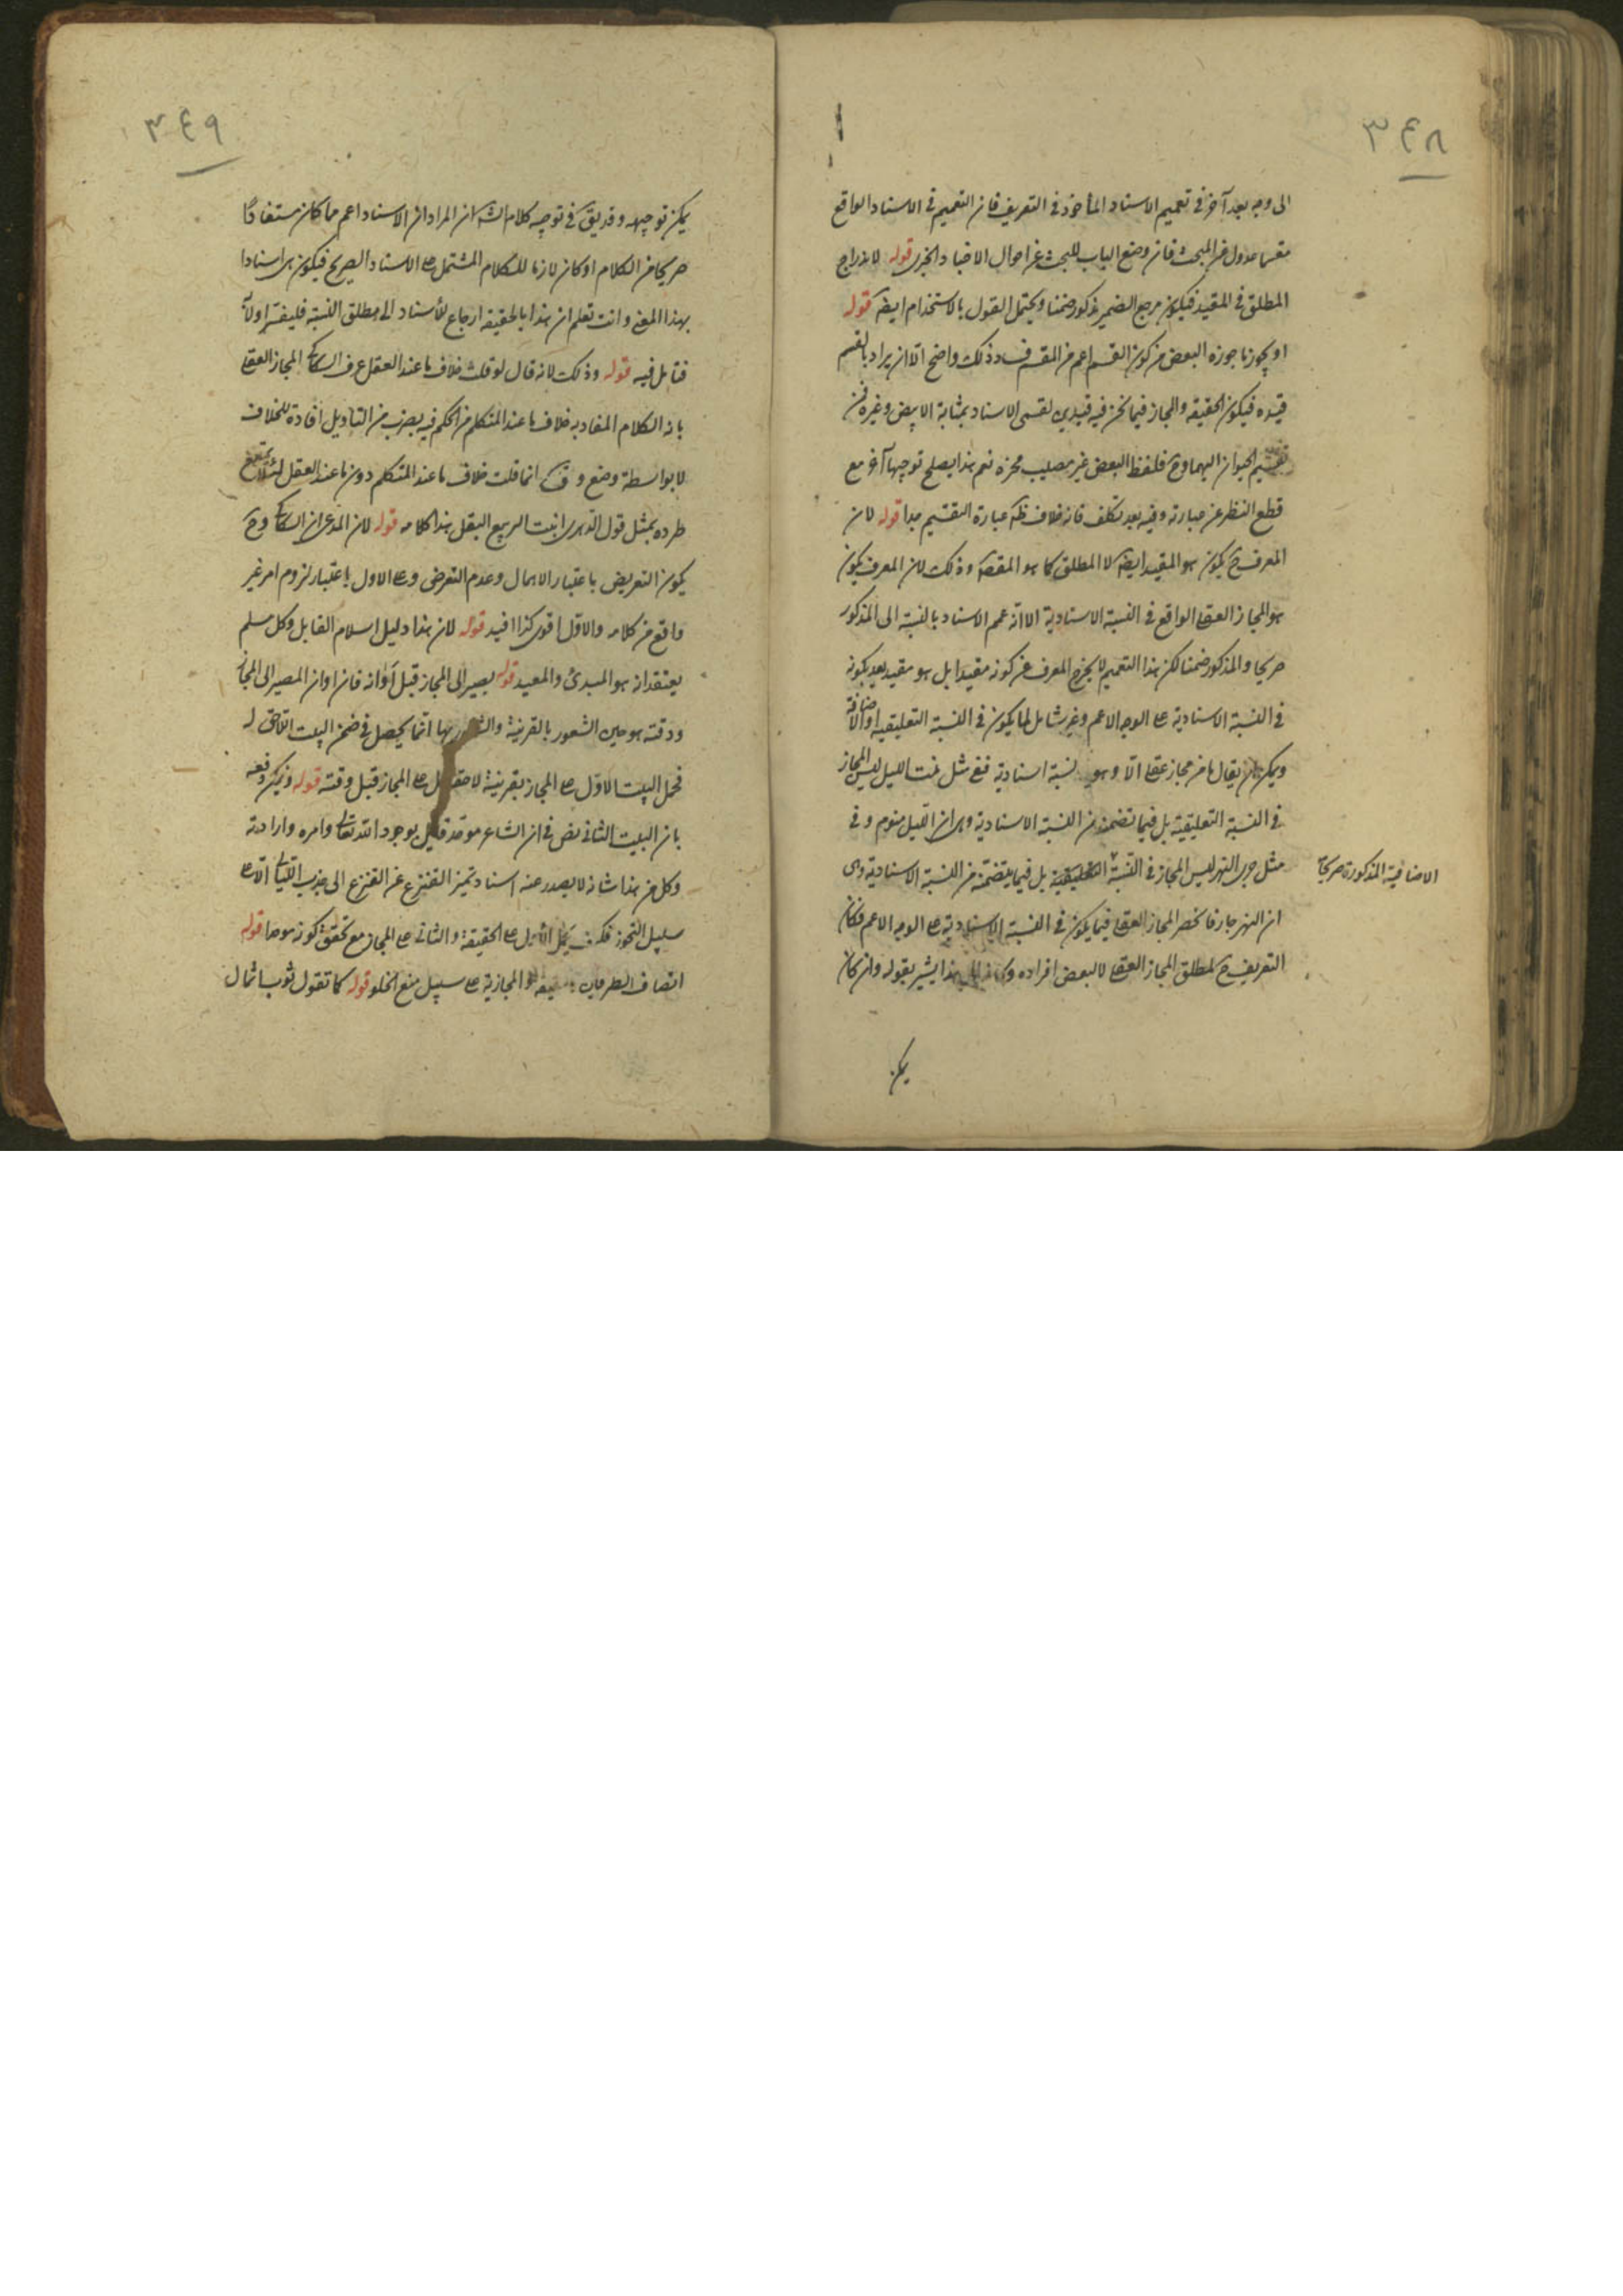 ٣٤٨
الى وجه بعد آخر فى تعميم الاسناد المأخوذ فى التعريف فان التعميم فى الاسناد الواقع
مقسما عدول عن المبحث فان وضع الباب للبحث عن احوال الاسناد الخبرى قوله لاندراج
المطلق فى المقيد فيكون مرجع الضمير مذكورا ضمنا ويحتمل القول بالاستخدام ايضا قوله
او يجوز ما جوزه البعض من كون القسم اعم من المقسم فساد ذلك واضح الا ان يراد بالقسم
قيده فيكون الحقيقة والمجاز فيما نحن فيه قيدين لقسمى الاسناد بمثابة الابيض وغيره فى
تقسيم الحيوان اليهما وح فلفظ البعض غير مصيب محزه نعم هذا يصلح توجيها آخر مع
قطع النظر عن عبارته وفيه بعد تكلف فانه خلاف ظ عبارة التقسيم جدا قوله لان
المعرف ح يكون هو المقيد ايضا لا المطلق كما هو المقصد وذلك لان المعرف يكون
هو المجاز العقلى الواقع فى النسبة الاسنادية الا انه عمم الاسناد بالنسبة الى المذكور
صريحا والمذكور ضمنا لكن هذا التعميم لا يخرج المعرف عن كونه مقيدا بل هو مقيد بعد بكونه
فى النسبة الاسنادية على الوجه الاعم وغير شامل لما يكون فى النسبة التعليقية او الاضافة
ويمكن ان يقال ما من مجاز عقلى الا وهو نسبة اسنادية ففى مثل نمت الليل ليس المجاز
فى النسبة التعليقية بل فيما تضمنه من النسبة الاسنادية وهى ان الليل منوم وفى
مثل جرى النهر ليس المجاز فى النسبة التعليقية بل فيما يتضمنه من النسبة الاسنادية وهى
الاضافية المذكورة صريحا
ان النهر جار فانحصر المجاز العقلى فيما يكون فى النسبة الاسنادية على الوجه الاعم فكان
التعريف ح لمطلق المجاز العقلى لا لبعض افراده وكانه الى هذا يشير بقوله وان كان
يمكن
٣٤٩
يمكن توجيهه وقد يق فى توجيه كلام الش ان المراد ان الاسناد اعم مما كان مستفادا
صريحا من الكلام او كان لازما للكلام المشتمل على الاسناد الصريح فيكون هى اسنادا
بهذا المعنى وانت تعلم ان هذا بالحقيقة ارجاع للاسناد الى مطلق النسبة فليفسر اولا به
فتامل فيه قوله وذلك لانه قال لو قلت خلاف ما عند العقل عرف السكاكى المجاز العقلى
بانه الكلام المفاد به خلاف ما عند المتكلم من الحكم فيه بضرب من التاويل افادة للخلاف
لا بواسطة وضع وق انما قلت خلاف ما عند المتكلم دون ما عند العقل لئلا يمتنع
طرده بمثل قول الدهرى انبت الربيع البقل هذا كلامه قوله لان المدعى ان السكاكى وح
يكون التعريض باعتبار الاهمال وعدم التعرض وعلى الاول باعتبار لزوم امر غير
واقع من كلامه والاول اقوى كذا افيد قوله لان هذا دليل اسلام القايل وكل مسلم
يعتقد انه هو المبدئ والمعيد قوله يصير الى المجاز قبل أوانه فان اوان المصير الى المجاز
ووقته هو حين الشعور بالقرينة والشعور بها انما يحصل فى ضمن البيت اللاحق له
فحمل البيت الاول على المجاز بقرينة لاحقة حمل على المجاز قبل وقته قوله ويمكن دفعه
بان البيت الثانى نص فى ان الشاعر موحد قايل بوجود الله تعالى وامره وارادته
وكل من هذا شانه لا يصدر عنه اسناد تميز القنزع عن القنزع الى جذب الليالى الا على
سبيل التجوز فكيف يحمل الاول على الحقيقة والثانى على المجاز مع تحقق كونه موحدا قوله
اتصاف الطرفين بالحقيقة او المجازية على سبيل منع الخلو قوله كما تقول ثوب اشمال